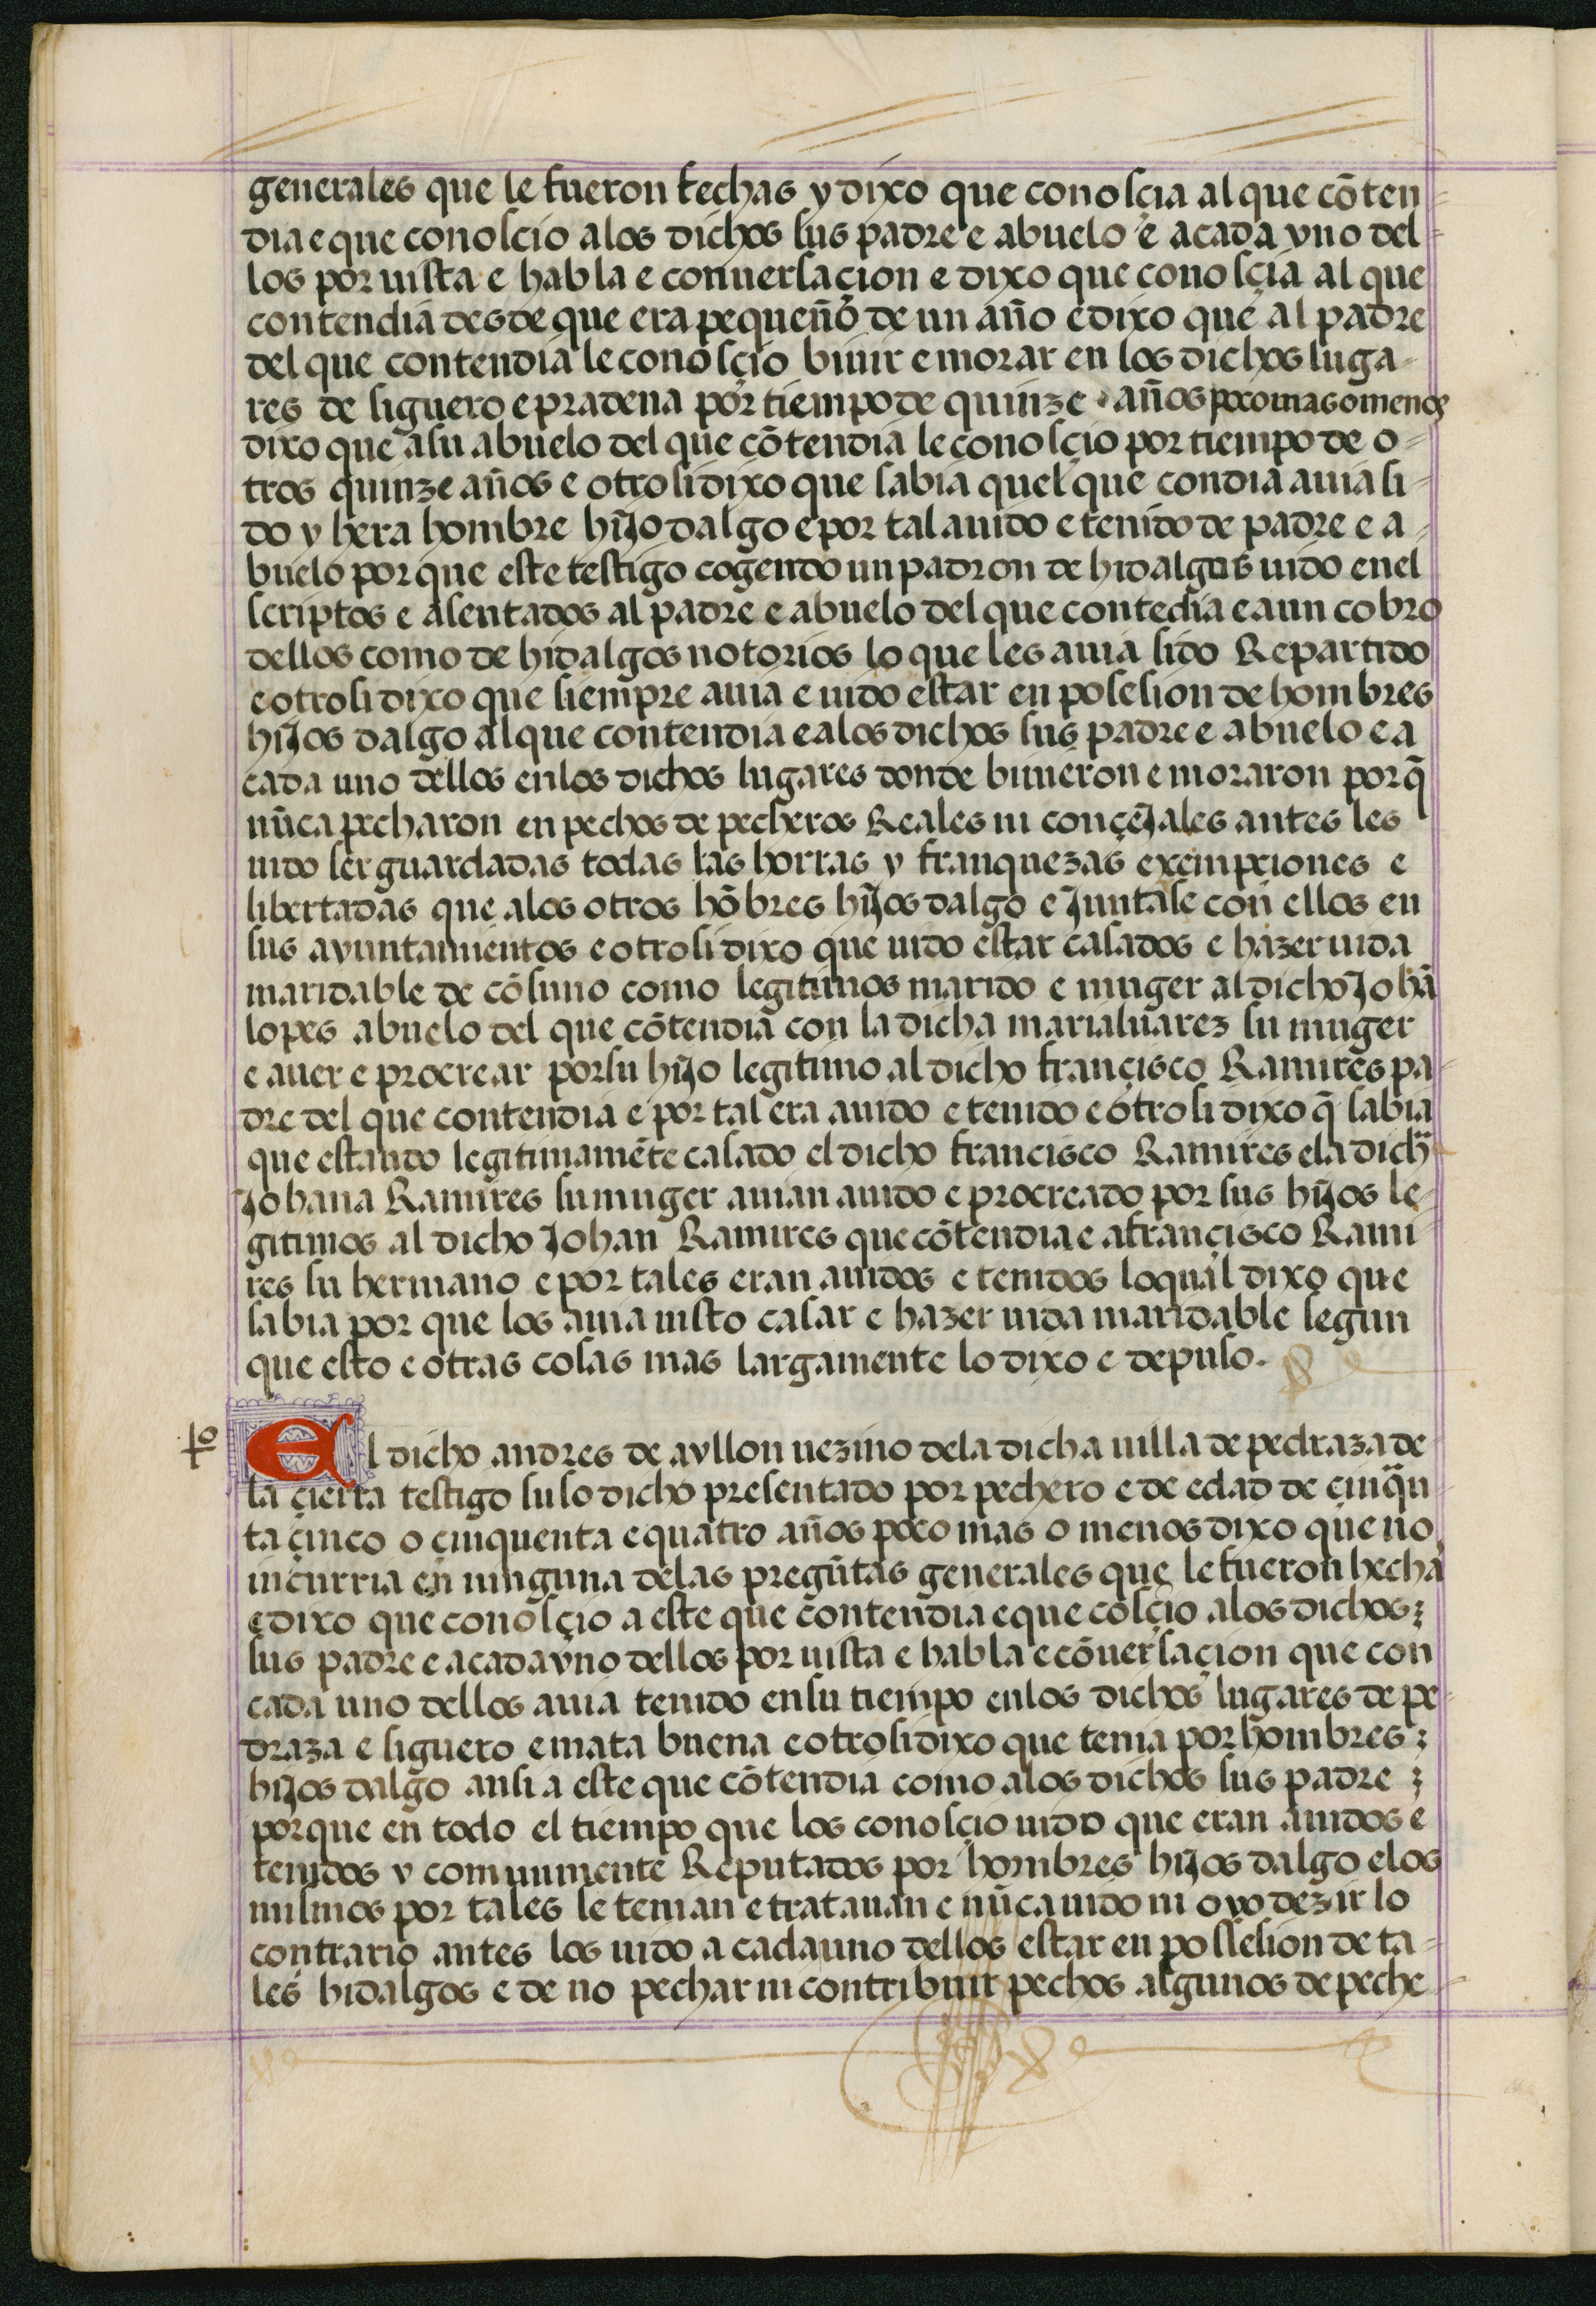 generales que le fueron fechas y dixo que conosçia al que cõten-
dia e que conoscio a los dichos sus padre e abuelo e a cada vno del-
los por uista e habla e conuersaçion e dixo que conosçia al que
contendia desde que era pequeño de un año e dixo que al padre
del que contendia le conosçio biuir e morar en los dichos luga-
res de siguero e pradena por tiempo de quinze años poco mas o menos
dixo que a su abuelo del que cõtendia le conosçio por tiempo de o-
tros quinze años e otrosi dixo que sabia quel que condia auia si-
do y hera hombre hijo dalgo e por tal auido e tenido de padre e a-
buelo por que este testigo cogendo un padron de hidalgos uido en el
scriptos e asentados al padre e abuelo del que contedia e aun cobro
dellos como de hidalgos notorios lo que les auia sido Repartido
e otrosi dixo que siempre auia e uido estar en posesion de hombres
hijos dalgo al que contendia e a los dichos sus padre e abuelo e a
cada uno dellos en los dichos lugares donde biuieron e moraron por q̃
nũca pecharon en pechos de pecheros Reales ni conçejales antes les
uido ser guardadas todas las horras y franquezas exempxiones e
libertadas que a los otros hõbres hijos dalgo e Juntase con ellos en
sus ayuntamientos e otrosi dixo que uido estar casados e hazer uida
maridable de cõsuno como legitimos marido e muger al dicho Johã
lopes abuelo del que cõtendia con la dicha marialuarez su muger
e auer e procrear por su hijo legitimo al dicho françisco Ramires pa-
dre del que contendia e por tal era auido e tenido e otrosi dixo q̃ sabia
que estando legitimamẽte casado el dicho francisco Ramires e la dich̃a
Johana Ramires su muger auian auido e procreado por sus hijos le-
gitimos al dicho Johan Ramires que cõtendia e a françisco Rami-
res su hermano e por tales eran auidos e tenidos lo qual dixo que
sabia por que los auia uisto casar e hazer uida maridable segun
que esto e otras cosas mas largamente lo dixo e depuso.
tº El dicho andres de ayllon uezino de la dicha uilla de pedraza de
la çierra testigo suso dicho presentado por pechero e de edad de çinq̃n-
ta çinco o çinquenta e quatro años poco mas o menos dixo que no
incurria en ninguna de las pregũtas generales que le fueron hecha
e dixo que conosçio a este que contendia e que cosçio a los dichos
sus padre e a cada vno dellos por uista e habla e cõuersaçion que con
cada uno dellos auia tenido en su tiempo en los dichos lugares de pe-
draza e siguero e mata buena e otrosi dixo que tenia por hombres
hijos dalgo ansi a este que cõtendia como a los dichos sus padre
porque en todo el tiempo que los conosçio uido que eran auidos e
tenidos y comunmente Reputados por hombres hijos dalgo e los
mismos por tales le tenian e tratauan e nũca uido ni oyo dezir lo
contrario antes los uido a cada uno dellos estar en possesion de ta-
les hidalgos e de no pechar ni contribuir pechos algunos de peche-